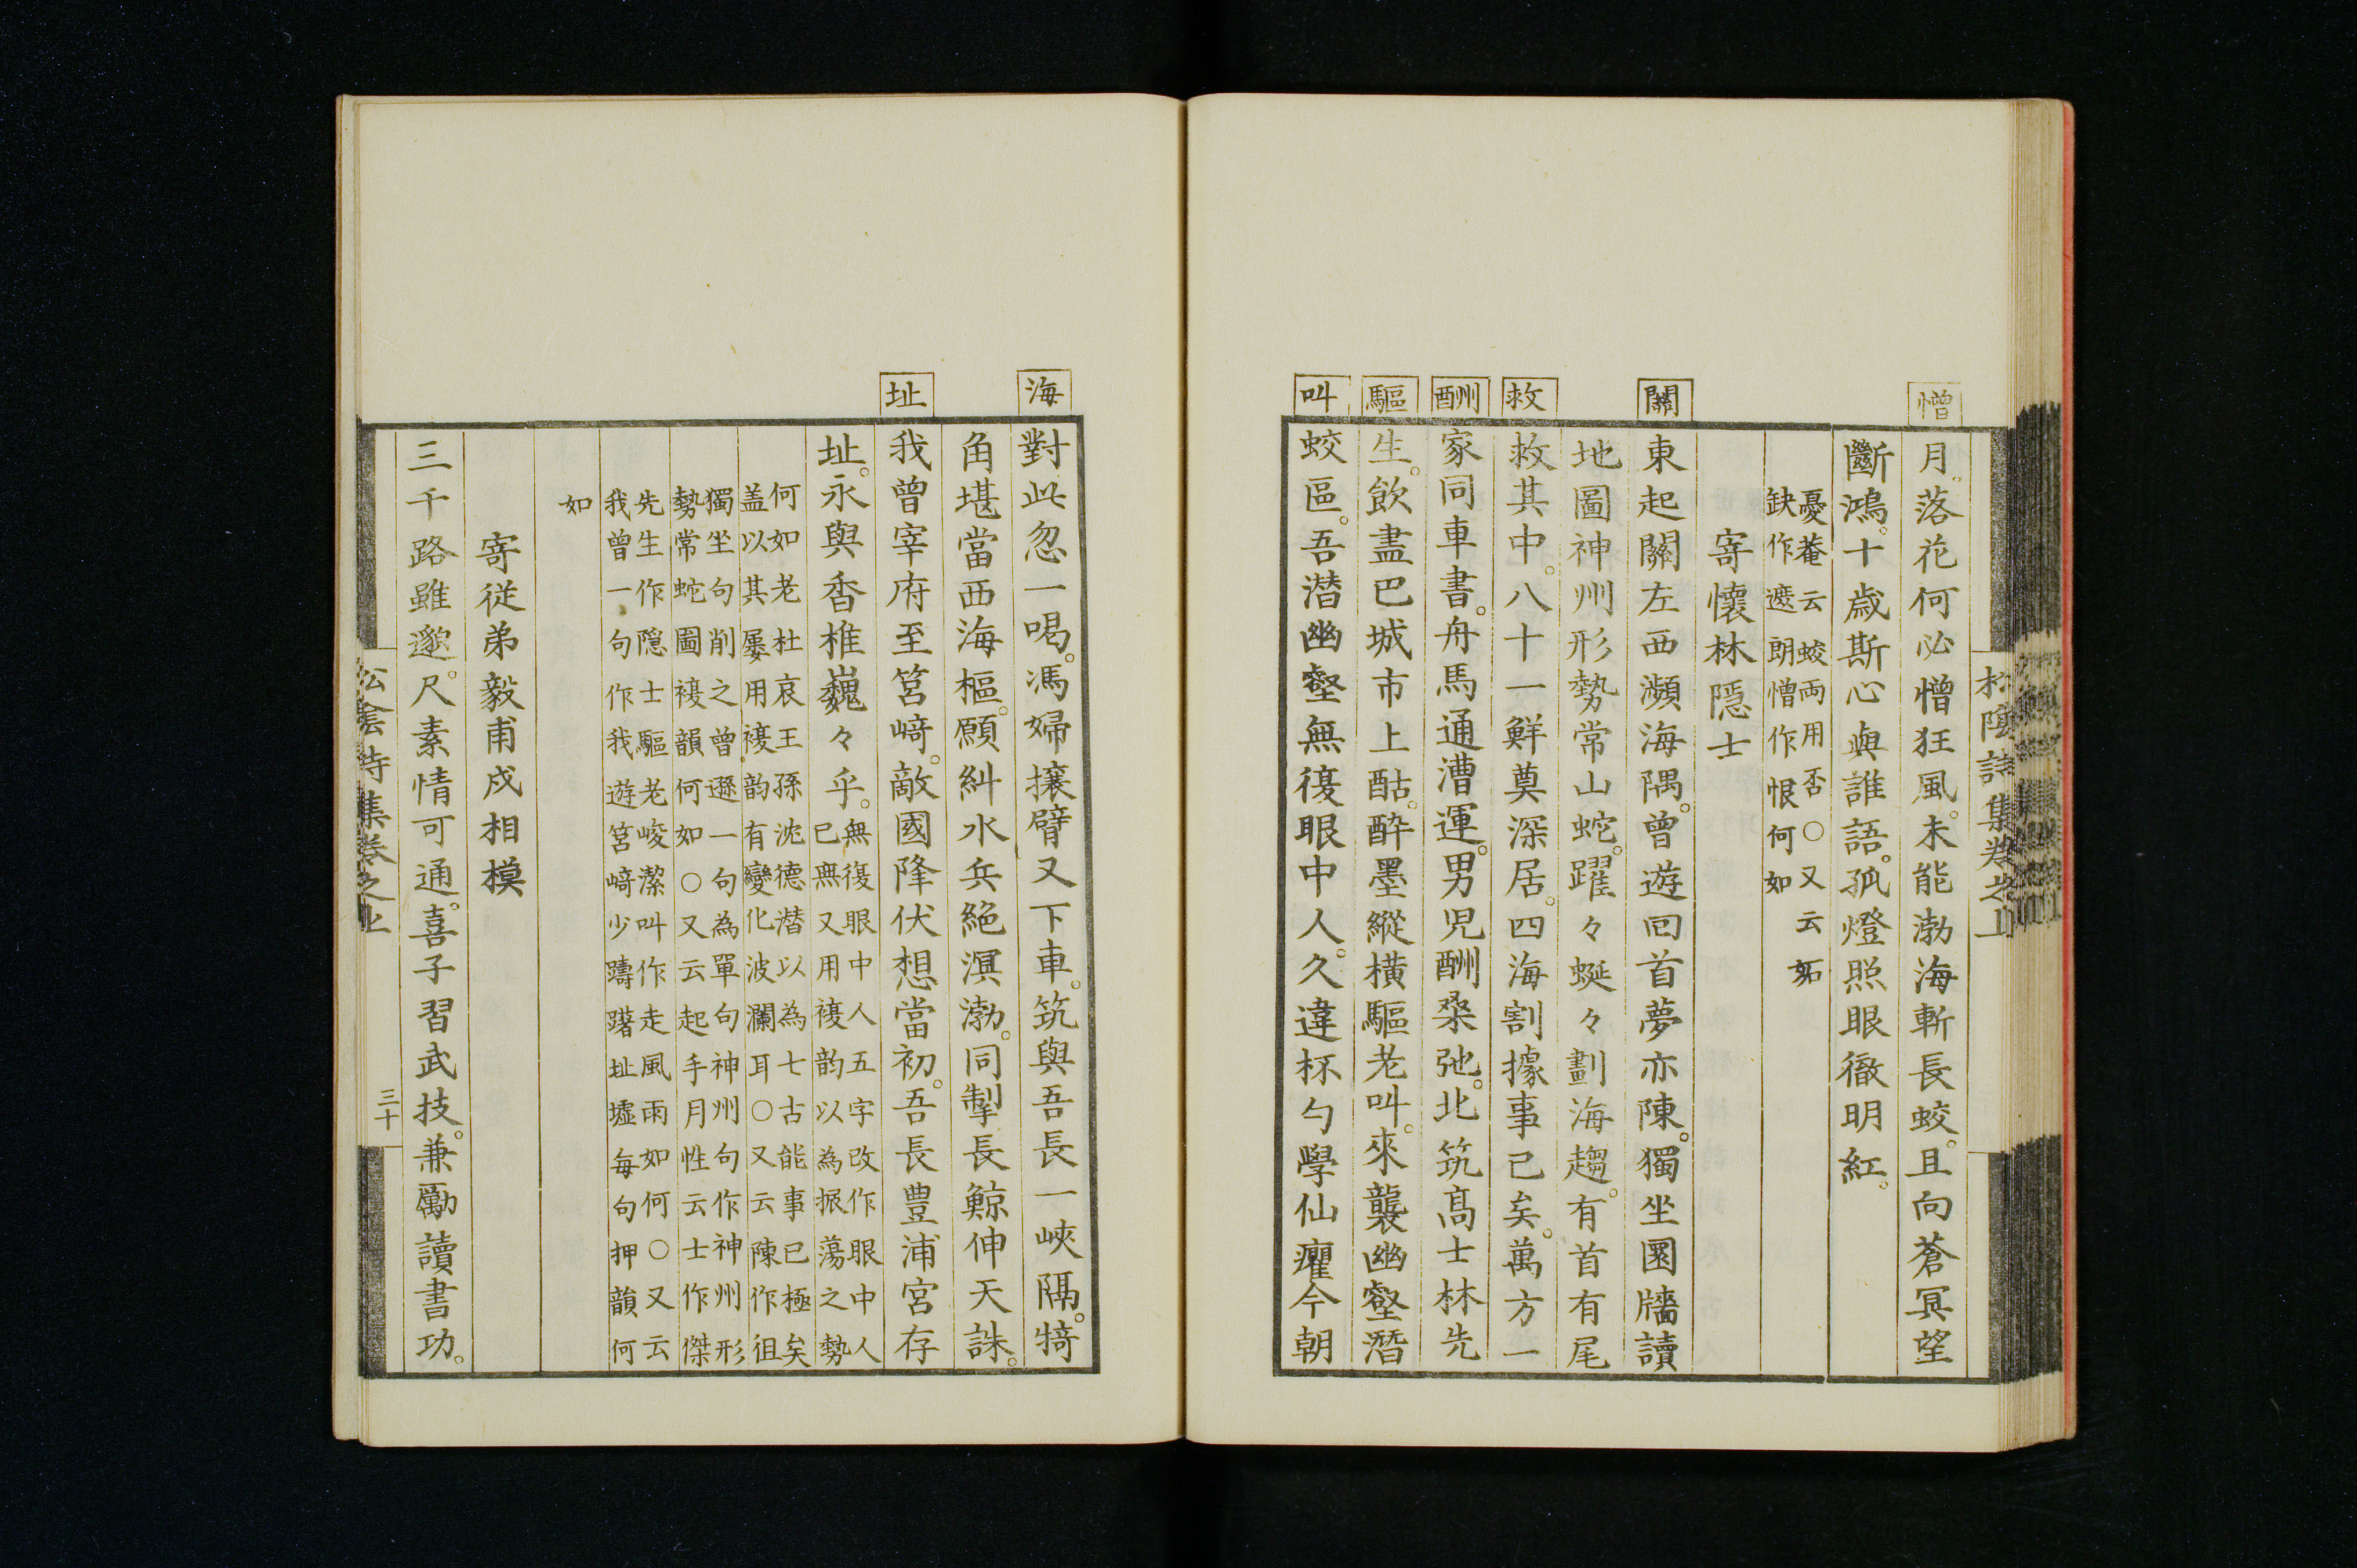 松陰詩集卷之上
憎
月。落花何必憎狂風。未能渤海斬長蛟。且向蒼冥望
斷鴻。十歲斯心與誰語。孤燈照眼徹明紅。
憂菴云蛟両用否○又云妬
缺作遮朗憎作恨何如
寄懷林隱士
關
東起關左西瀕海隅。曾遊回首夢亦陳。獨坐圜牆讀
地圖神州形勢常山蛇。躍々蜒々劃海趨。有首有尾
救
救其中。八十一鮮奠深居。四海割據事已矣。萬方一
酬
家同車書。舟馬通漕運。男児酬桑弧。北筑高士林先
驅
生。飲盡巴城市上酤。醉墨縱橫驅老叫。來襲幽壑潛
叫
蛟區。吾潜幽壑無復眼中人。久違杯勺學仙癯今朝
海
對此忽一喝。馮婦攘臂又下車。筑與吾長一峽隔。犄
角堪當西海樞。願糾水兵絕溟渤。同掣長鯨伸天誅。
址
我曾宰府至筥﨑。敵國降伏想當初。吾長豊浦宮存
址。永與香椎巍々乎。
無復眼中人五字改作眼中人
已無又用複韵以為振蕩之勢
何如老杜哀王孫沈德潜以為七古能事已極矣
盖以其屢用複韵有變化波瀾耳○又云陳作徂
獨坐句削之曾遜一句為單句神州句作神州形
勢常蛇圖複韻何如○又云起手月性云士作傑
先生作隱士驅老峻潔叫作走風雨如何○又云
我曾一句作我遊筥﨑少躊躇址墟每句押韻何
如
寄従弟毅甫戍相模
三千路雖邈。尺素情可通。喜子習武技。兼勵讀書功。
松陰詩集卷之上
三十